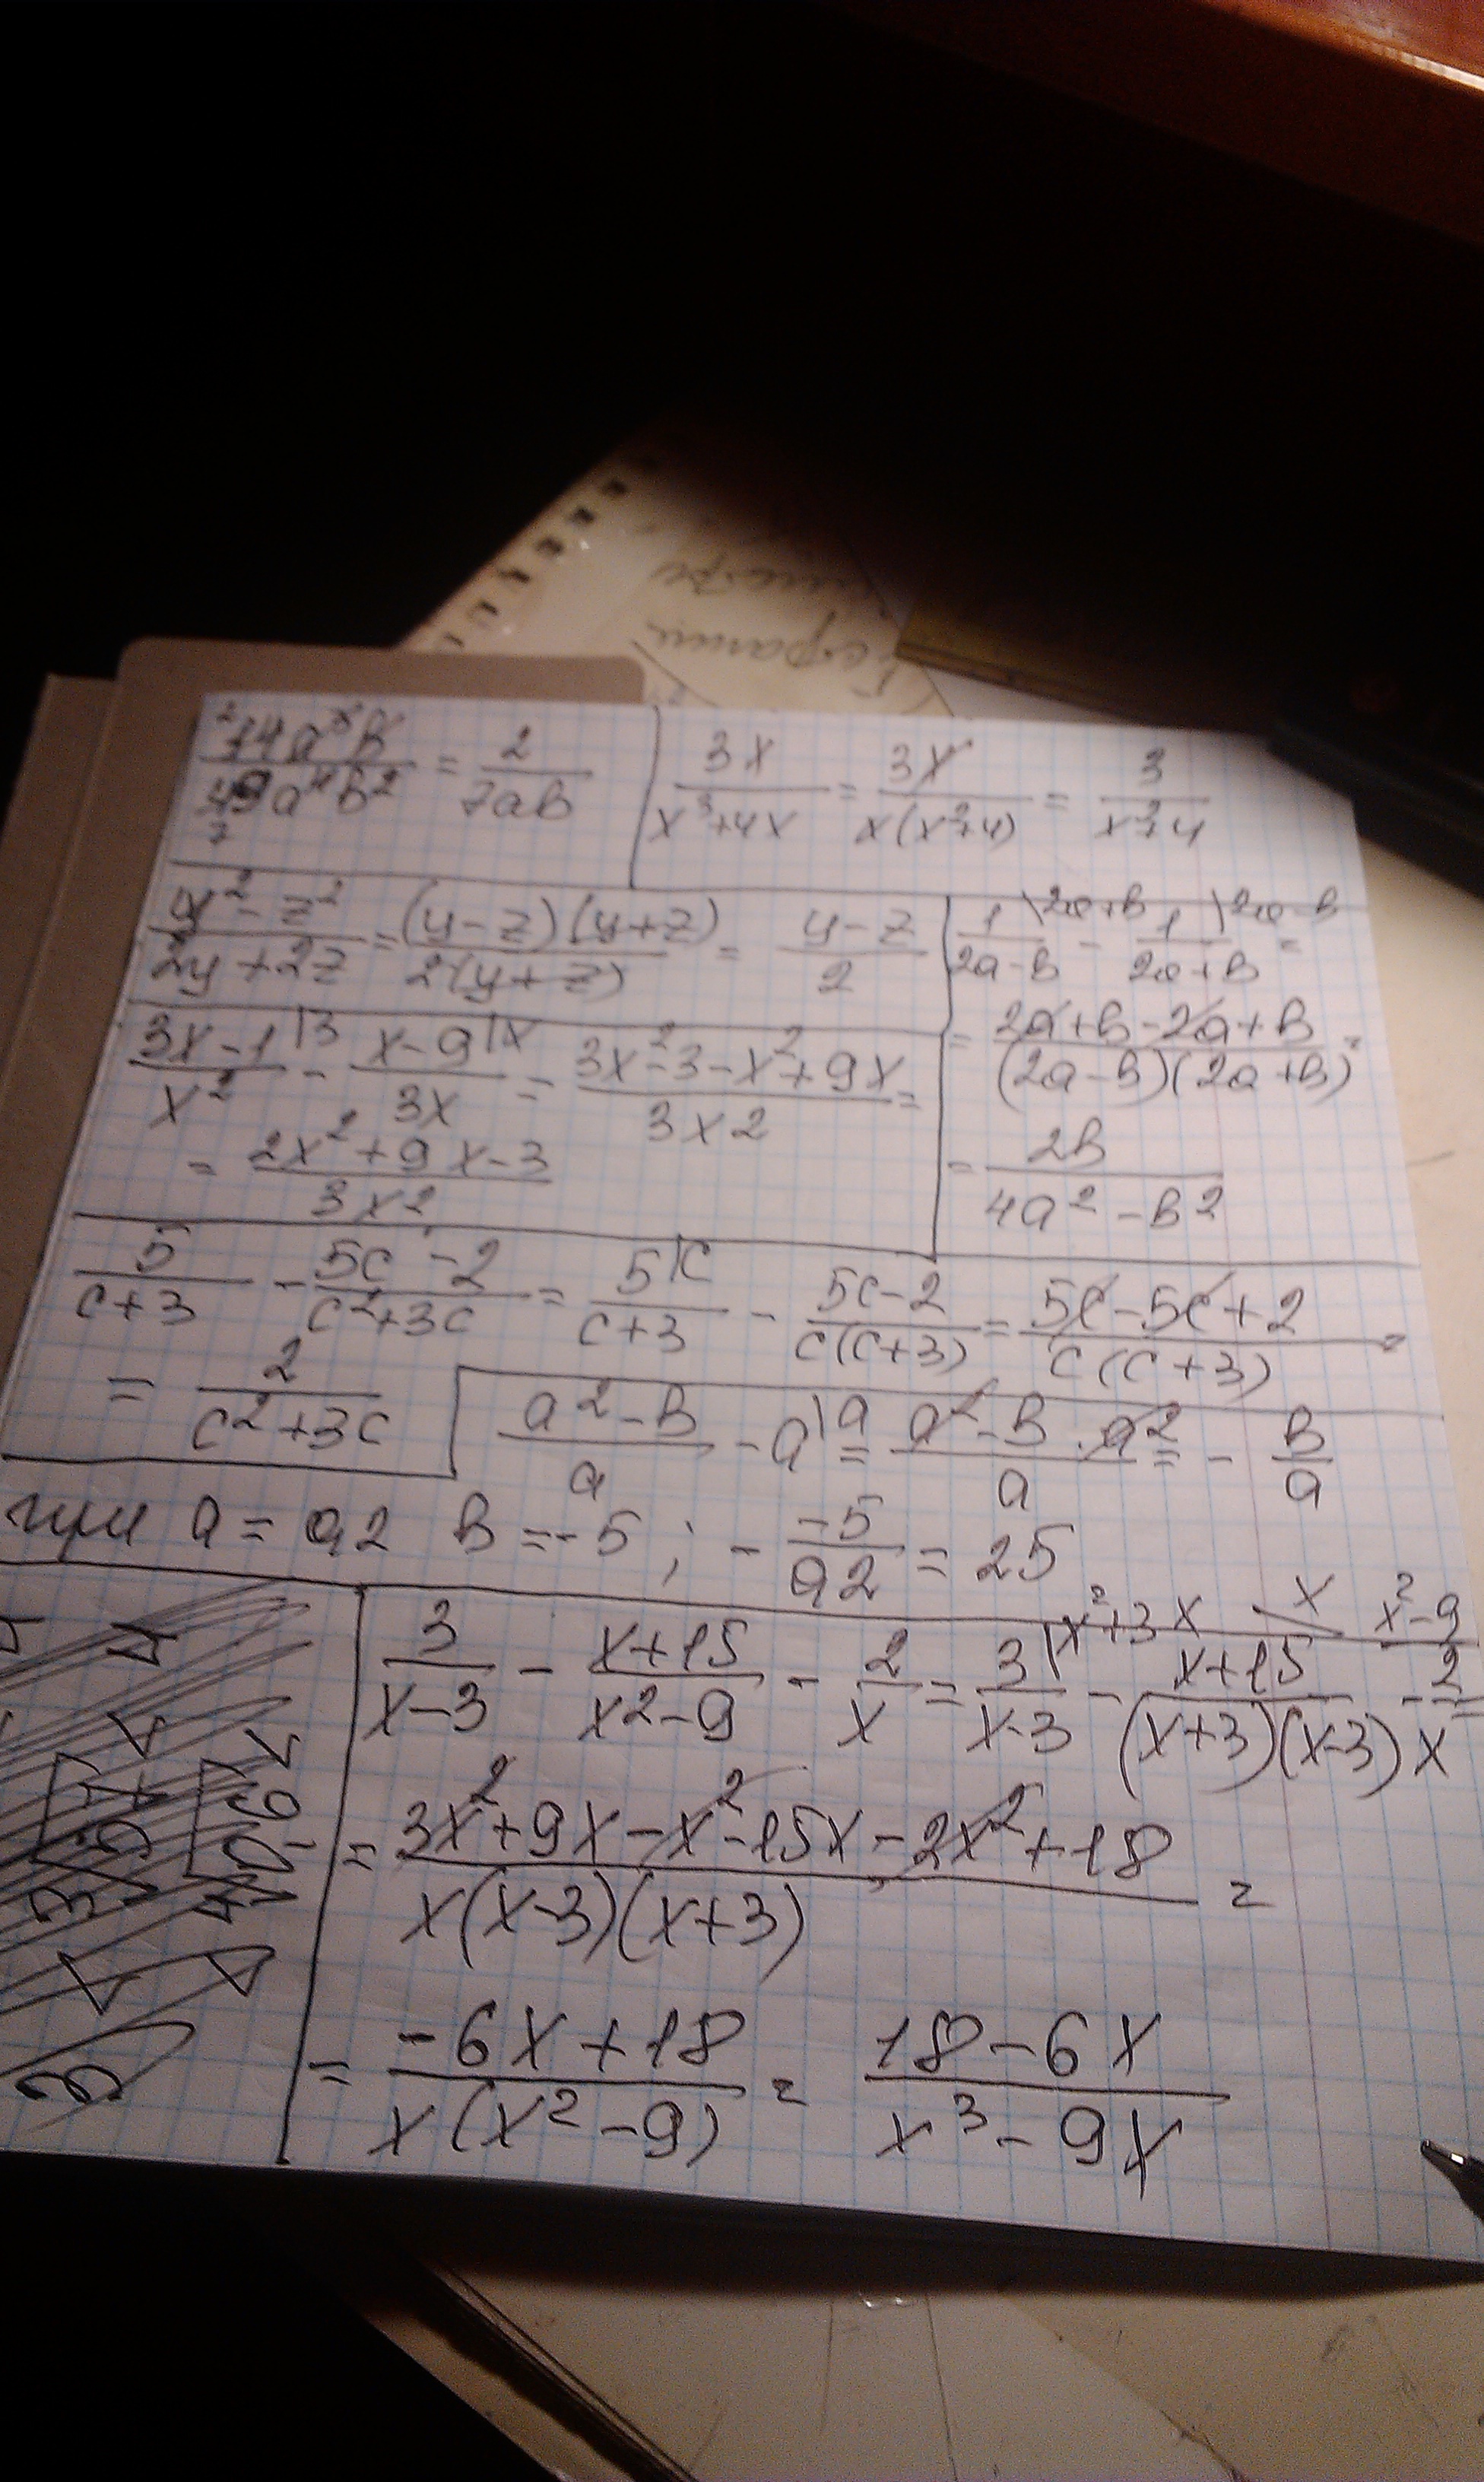 14a³b/49a⁴b² = 2/7ab
3x/(x³+4x) = 3x/x(x²+4) = 3/(x²+4)
(y²-z²)/(2y+2z) = (y-z)(y+z)/2(y+z) = (y-z)/2
1/(2a-b) \2a+b - 1/(2a+b) \2a-b =
= (2a+b-2a+b)/(2a-b)(2a+b) =
= 2b/(4a²-b²)
(3x-1)/x² \3 - (x-9)/3x \x = (3x²-3-x²+9x)/3x² =
= (2x²+9x-3)/3x²
5/(c+3) - (5c-2)/(c²+3c) = 5/(c+3) \c - (5c-2)/c(c+3) = (5c-5c+2)/c(c+3) =
= 2/(c²+3c)
(a²-b)/a - a \a = (a²-b-a²)/a = - b/a
при a = 0,2 b = -5 ; - -5/0,2 = 25
3/(x-3) - (x+15)/(x²-9) - 2/x = 3/(x-3) \x²+3x - (x+15)/(x+3)(x-3) \x - 2/x \x²-9 =
= (3x²+9x-x²-15x-2x²+18)/x(x-3)(x+3) =
= (-6x+18)/x(x²-9) = (18-6x)/(x³-9x)